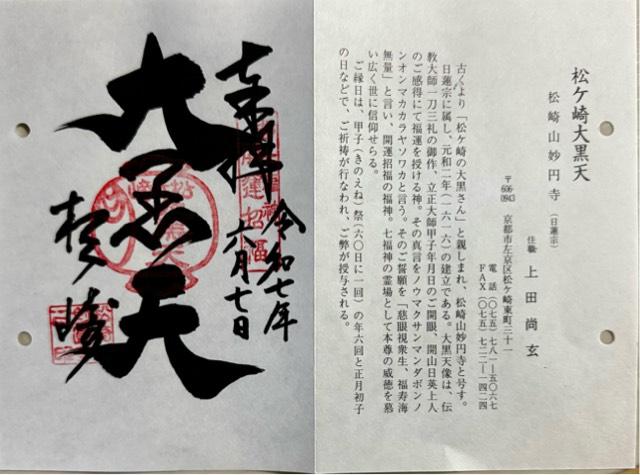 松ケ崎大黒天
松崎山妙円寺
（日蓮宗）
住職 上田尚玄
〒606-0943 京都市左京区松ケ崎東町三十一
電話（〇七五）七八一－五〇六七
FAX（〇七五）七二二－一四二四
古くより「松ケ崎の大黒さん」と親しまれ、松崎山妙円寺と号す。
日蓮宗に属し、元和二年（一六一六）の建立である。大黒天像は、伝
教大師一刀三礼の御作、立正大師甲子年月日のご開眼、開山日英上人
のご感得にて福運を授ける神。その真言をノウマクサンマンダボダナ
ンオンマカカラヤソワカと言う。そのご誓願を「慈眼視衆生、福寿海
無量」と言い、開運招福の福神。七福神の霊場として本尊の威徳を慕
い広く世に信仰せらる。
ご縁日は、甲子（きのえね）祭（六〇日に一回）の年六回と正月初子
の日などで、ご祈祷が行なわれ、ご弊が授与される。
奉拝
令和七年
六月七日
大黒天
松ヶ崎